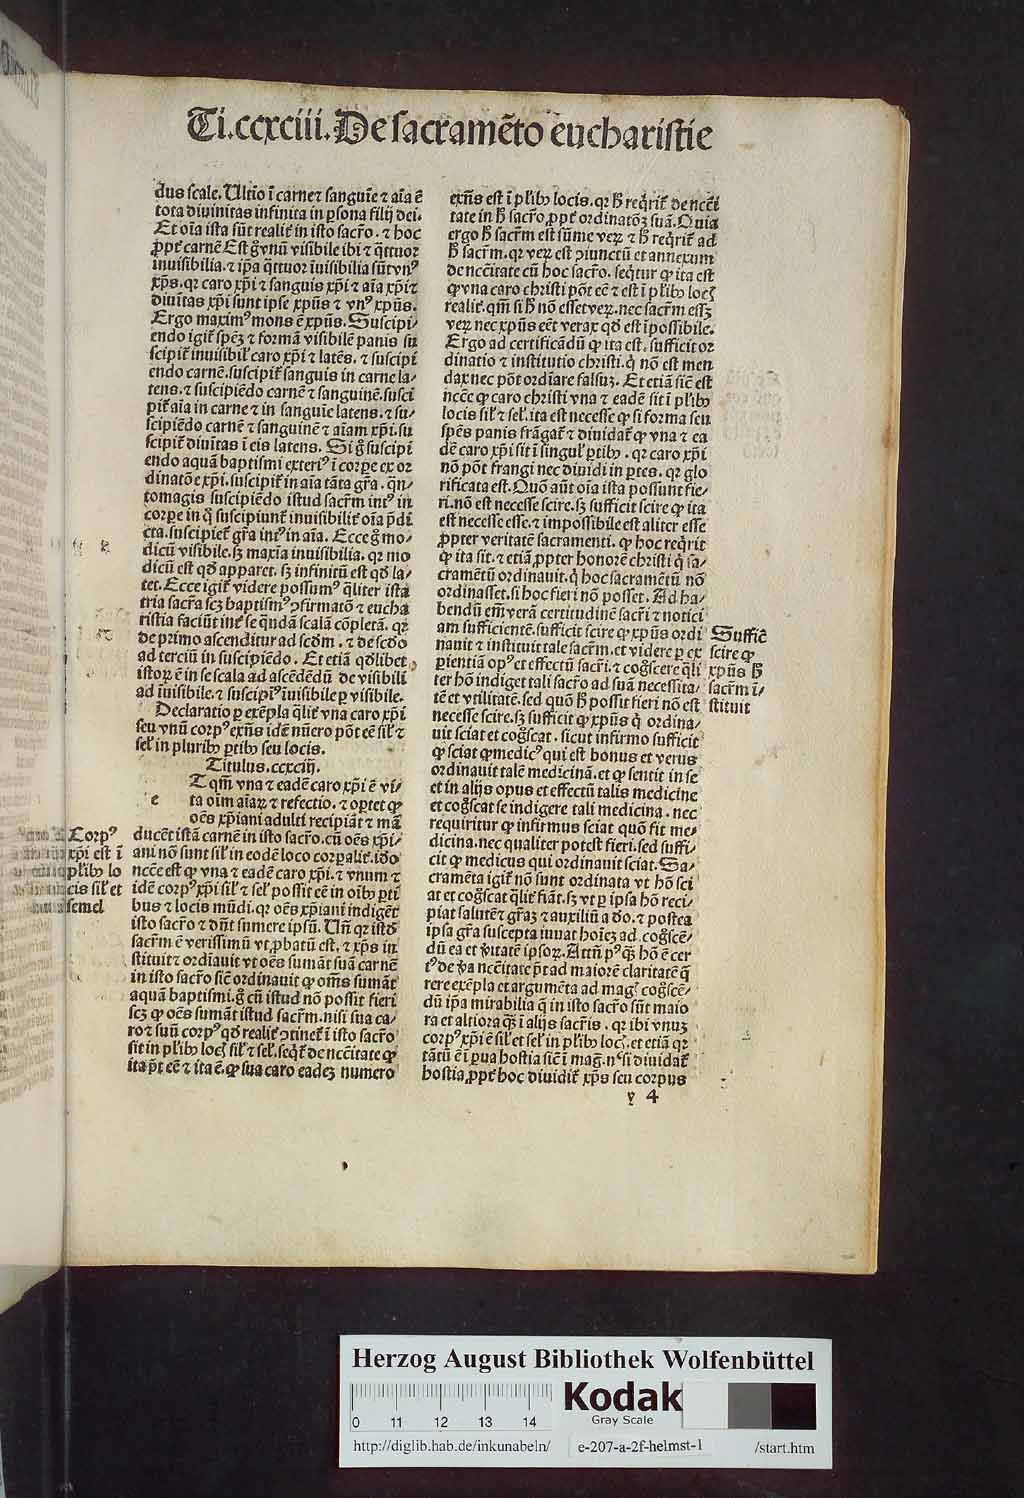 Ti.ccxciii.De sacramēto eucharistie
dus scale. Ultīo ī carne ⁊ sanguīe ⁊ aīa ē
tota diuinitas infinita in ꝑsona filij dei.
Et oīa ista sūt realiť in isto sacřo. ⁊ hoc
ꝓpť carnē Est ǧ vnū visibile ibi ⁊ q̈ttuor
inuisibilia. ⁊ ip̄a q̈ttuor īuisibilia sūt vnꝰ
xp̄s. qꝛ caro xp̄i ⁊ sanguis xp̄i ⁊ aīa xp̄i ⁊
diuītas xp̄i sunt ipse xp̄us ⁊ vnꝰ xp̄us.
Ergo maximꝰ mons ē xp̄us. Suscipi⸗
endo igiť spēꝫ ⁊ formā visibilē panis su
scipiť inuisibilꝉ caro xp̄i ⁊ latēs. ⁊ suscipi
endo carnē. suscipiť sanguis in carne la⸗
tens. ⁊ suscipiēdo carnē ⁊ sanguinē. susci
piť aīa in carne ⁊ in sanguīe latens. ⁊ su⸗
scipiēdo carnē ⁊ sanguinē ⁊ aīam xp̄i. su
scipiť diuītas ī eis latens. Si ǧ suscipi
endo aquā baptismi exteriꝰ ī corpe ex or
dinatōe xp̄i. suscipiť in aīa tāta gr̄a. qn̄⸗
tomagis suscipiēdo istud sacřm intꝰ in
corpe in q̊ suscipiunť inuisibiliť oīa p̄di
cta. suscipieť gr̄a intꝰ in aīa. Ecce ǧ mo⸗
dicū visibile. sꝫ maxīa inuisibilia. qꝛ mo
dicū est qď apparet. sꝫ infinitū est qď la⸗
tet. Ecce igiť videre possumꝰ q̈liter ista
tria sacřa scꝫ baptismꝰ ꝯfirmatō ⁊ eucha
ristia faciūt inť se q̄ndā scalā cōpletā. qꝛ
de primo ascenditur ad scďm. ⁊ de scďo
ad terciū in suscipiēdo. Et etiā qďlibet
istoꝝ ē in se scala ad ascēdēdū de visibili
ad īuisibile. ⁊ suscipiꝰ īuisibile ꝑ visibile.
Declaratio ꝑ exēpla q̈liť vna caro xp̄i
seu vnū corpꝰ exn̄s idē nūero pōt eē silꝉ ⁊
selꝉ in pluribꝰ ꝑtibꝰ seu locis.
Titulus. ccxciij.
e
Tqm̄ vna ⁊ eadē caro xp̄i ē vi⸗
ta oīm aīaꝝ ⁊ refectio. ⁊ oꝑtet ꝙ
oēs xp̄iani adulti recipiāt ⁊ mā
ducēt istā carnē in isto sacřo. cū oēs xp̄i⸗
ani nō sunt silꝉ in eodē loco corꝑaliť. iďo
ncc̄e est ꝙ vna ⁊ eadē caro xp̄i. ⁊ vnum ⁊
idē corpꝰ xp̄i silꝉ ⁊ selꝉ possit eē in oībꝰ ꝑti
bus ⁊ locis mūdi. qꝛ oēs xp̄iani indigēt
isto sacřo ⁊ dn̄t sumere ipsū. Un̄ qꝛ istď
sacřm ē verissimū vt ꝓbatū est, ⁊ xp̄s in
stituit ⁊ ordīauit vt oēs sumāt suā carnē
in isto sacřo siē ordinauit ꝙ om̄s sumāt
aquā baptismi. ǧ cū istud nō possit fieri
scꝫ ꝙ oēs sumāt istud sacřm. nisi sua ca⸗
ro ⁊ suū corpꝰ qď realiť ꝯtineť ī isto sacřo
sit in pľibꝰ locꝭ silꝉ ⁊ selꝉ. seq̊ť de ncc̄itate ꝙ
ita p̄t eē ⁊ ita ē. ꝙ sua caro eadeꝫ numero
Corpꝰ
xp̄i est ī
pľibꝰ lo
cis silꝉ et
semel
exn̄s est ī pľibꝰ locis. qꝛ ħ req̊riť de nccī
tate in ħ sacřo ꝓpť ordinatōꝫ suā. Quia
ergo ħ sacřm est sūme veꝝ ⁊ ħ req̊riť ad
ħ sacřm. qꝛ veꝝ est ꝯiunctū et annexum
de ncc̄itate cū hoc sacřo. seq̊tur ꝙ ita est
ꝙ vna caro christi pōt eē ⁊ est ī pľibꝰ locꝭ
realiť. qm̄ si ħ nō esset veꝝ. nec sacřm essꝫ
veꝝ nec xp̄us eēt verax qď est īpossibile.
Ergo ad certificādū ꝙ ita est. sufficit or
dinatio ⁊ institutio christi. q̊ nō est men
dax nec pōt ordīare falsuꝫ. Et etiā siē est
ncc̄e ꝙ caro christi vna ⁊ eadē sit ī pľibꝰ
locis silꝉ ⁊ selꝉ. ita est necesse ꝙ si forma seu
spēs panis frāgať ⁊ diuidať ꝙ vna ⁊ ea
dē caro xp̄i sit ī singulꝉ ꝑtibꝰ. qꝛ caro xp̄i
nō pōt frangi nec diuidi in ꝑtes. qꝛ glo
rificata est. Quō aūt oīa ista possunt fie⸗
ri. nō est necesse scire. sꝫ sufficit scire ꝙ ita
est necesse esse. ⁊ impossibile est aliter esse
ꝓpter veritatē sacramenti. ꝙ hoc req̊rit
ꝙ ita sit. ⁊ etiā ꝓpter honorē christi q̊ sa⸗
cramētū ordinauit. q̊ hoc sacramētū nō
ordinasset. si hoc fieri nō posset. Ad ha⸗
bendū em̄ verā certitudinē sacři ⁊ notici
am sufficientē. sufficit scire ꝙ xp̄us ordi
nauit ⁊ instituit tale sacřm. et videre ꝑ ex
perientiā opꝰ et effectū sacři. ⁊ cogn̄scere q̈li
ter hō indiget tali sacřo ad suā necessita⸗
tē et vtilitatē. sed quō ħ possit fieri nō est
necesse scire. sꝫ sufficit ꝙ xp̄us q̊ ordina⸗
uit sciat et cogn̄scat. sicut infirmo sufficit
ꝙ sciat ꝙ medicꝰ qui est bonus et verus
ordinauit talē medicinā. et ꝙ sentit in se
et in alijs opus et effectū talis medicine
et cogn̄scat se indigere tali medicina. nec
requiritur ꝙ infirmus sciat quō fit me⸗
dicina. nec qualiter potest fieri. sed suffi⸗
cit ꝙ medicus qui ordinauit sciat. Sa⸗
cramēta igiť nō sunt ordinata vt hō sci
at et cogn̄scat q̈liť fiāt. sꝫ vt ꝑ ipsa hō reci⸗
piat salutē ⁊ gr̄aꝫ ⁊ auxiliū a ďo. ⁊ postea
ipsa gr̄a suscepta iuuat hoīeꝫ ad cogn̄scē⸗
dū ea et v̓itatē ipsoꝝ. Attn̄ pꝰ qꝫ hō ē cer
tꝰ de v̓a ncc̄itate p̄t ad maiorē claritatē q̄
rere exēpla et argumēta ad magꝭ cogn̄scē⸗
dū ip̄a mirabilia q̄ in isto sacřo sūt maio
ra et altiora qꝫ ī alijs sacřis. qꝛ ibi vnuꝫ
corpꝰ xp̄i ē silꝉ et selꝉ in pľibꝰ locꝭ. et etiā qꝛ
tātū ē ī ꝑua hostia siē ī mag. nꝰ si diuidať
hostia ꝓpť hoc diuidiť xp̄s seu corpus
Suffic̄
scire ꝙ
xp̄us ħ
sacřm ī⸗
stituit
y 4
Herzog August Bibliothek Wolfenbüttel
0 11 12 13 14
Kodak
Gray Scale
http://diglib.hab.de/inkunabeln/
e-207-a-2f-helmst-1
/start.htm